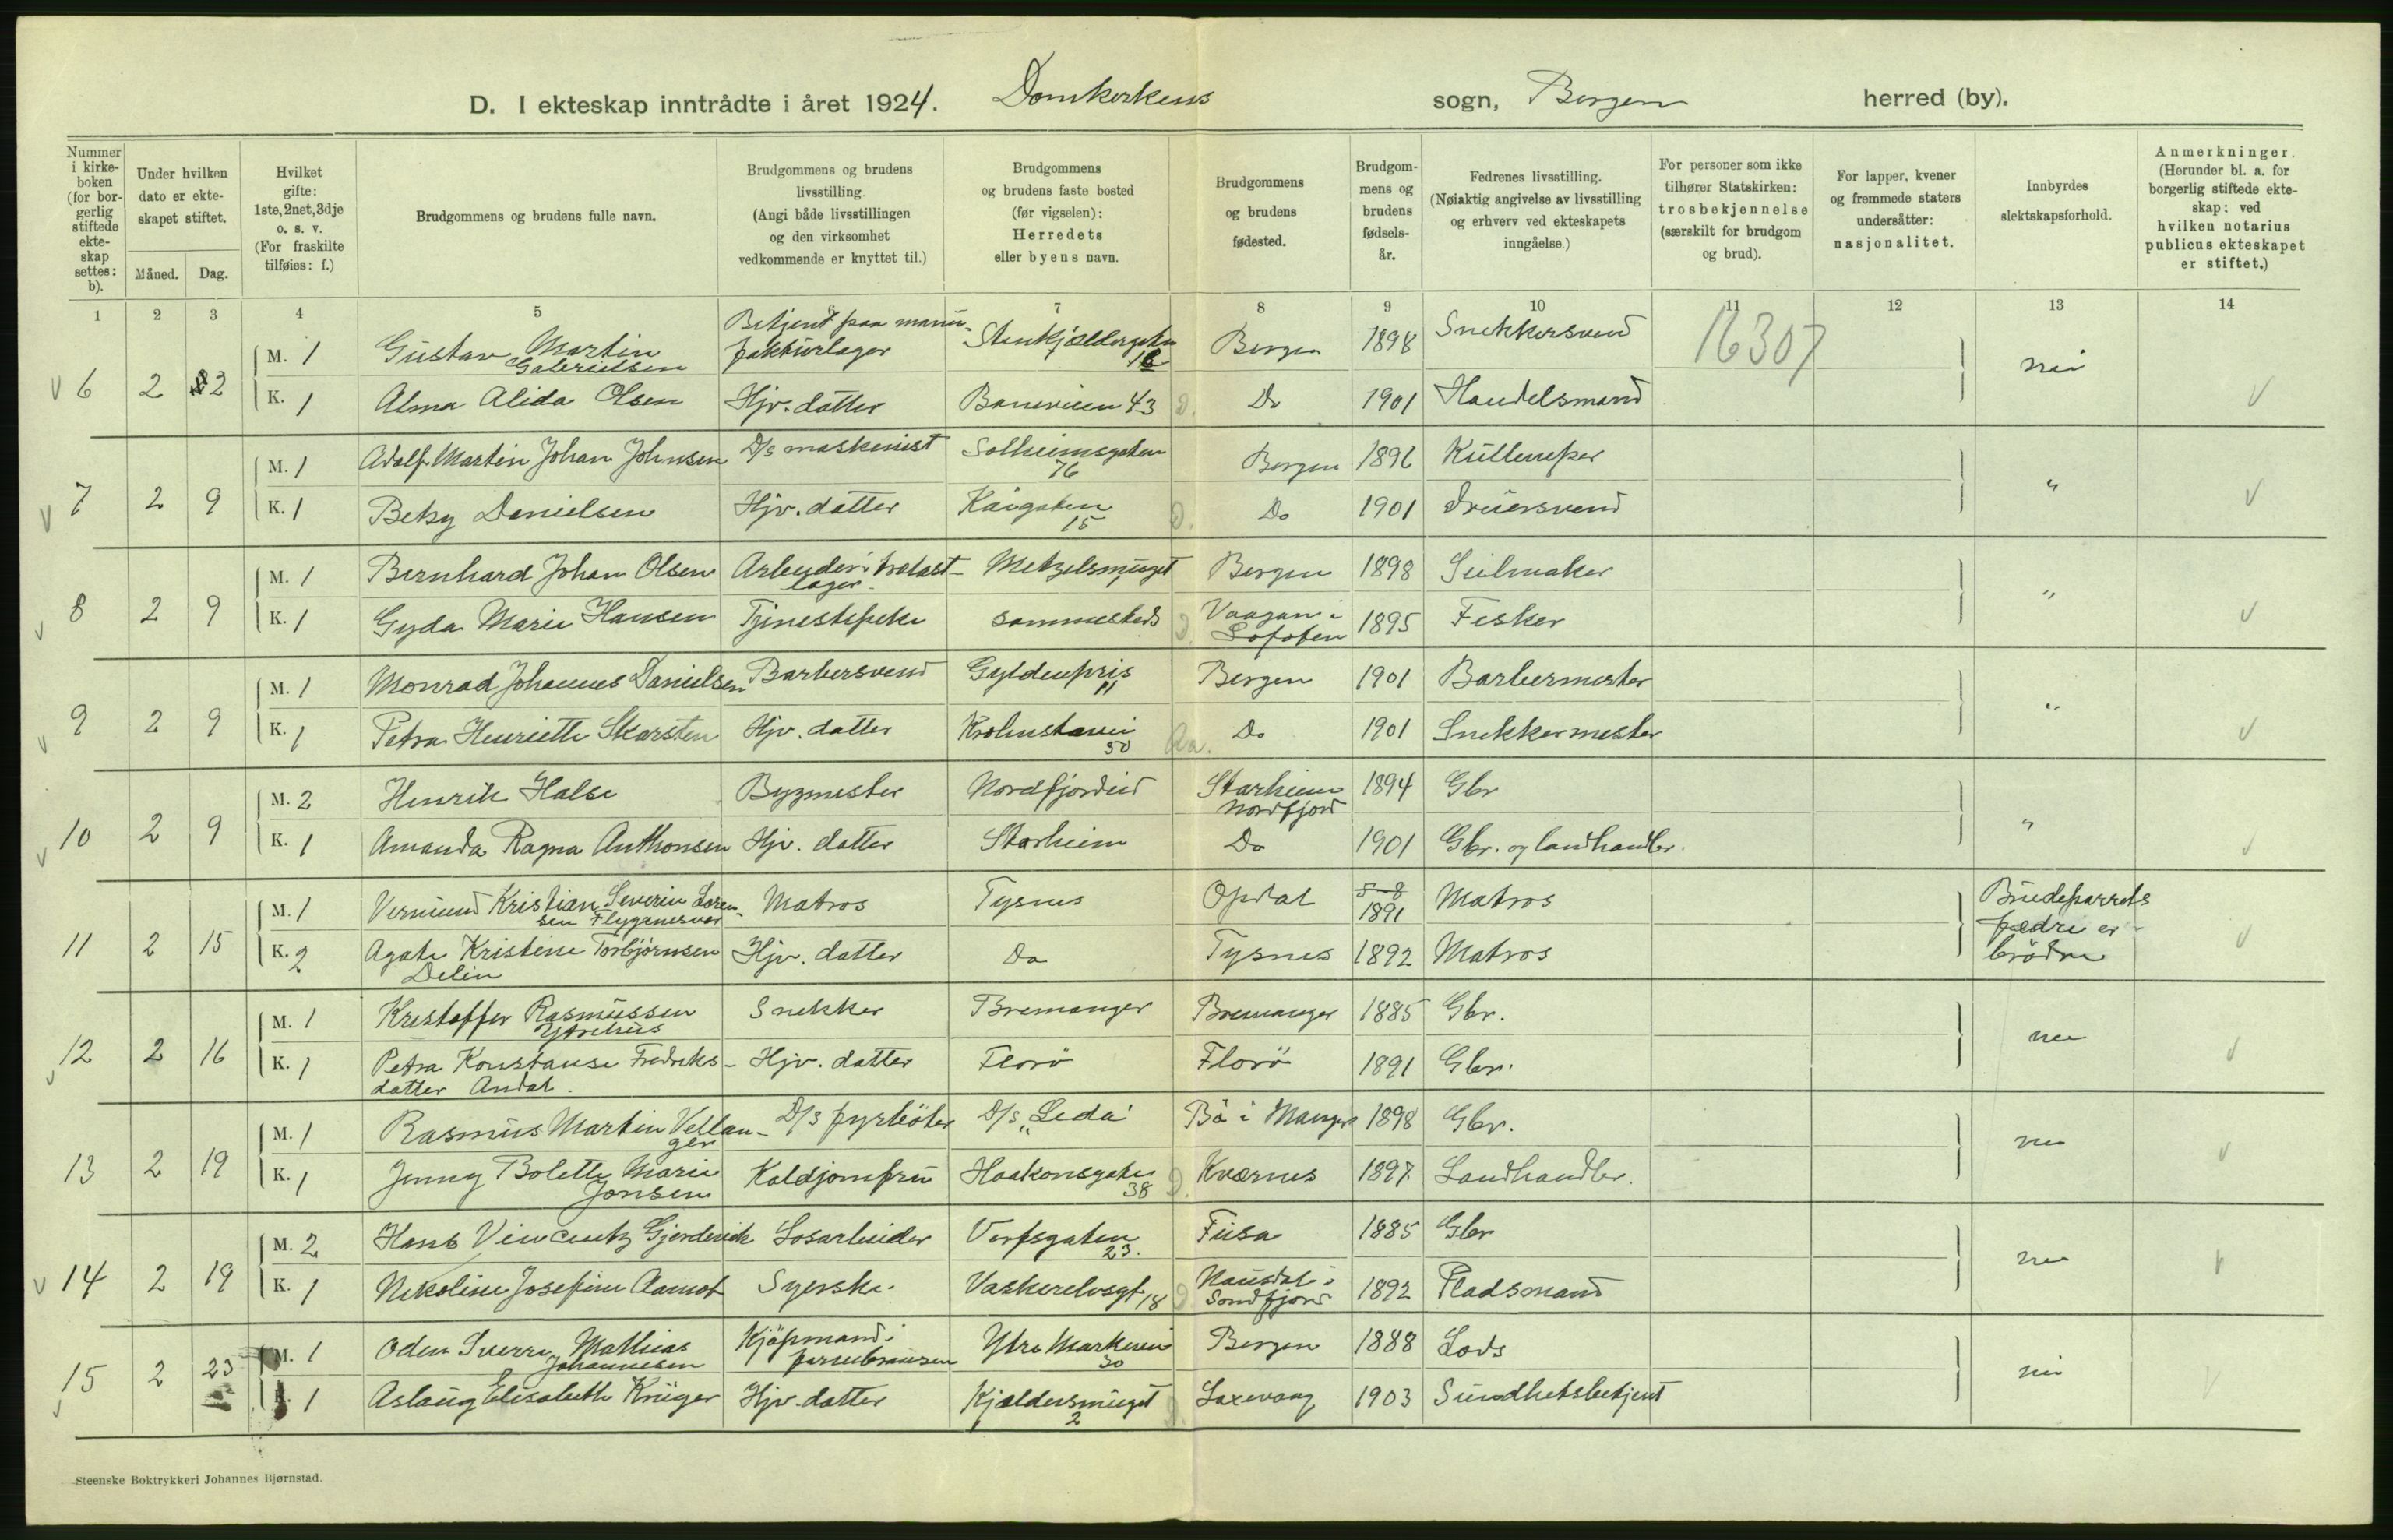 D. I ekteskap inntrådte i året 1924. Domkirkens sogn, Bergen herred (by).
Nummer i kirkeboken (for borgerlig stiftede ekteskap settes: b).
Under hvilken dato er ekteskapet stiftet.
Måned. Dag.
Hvilket gifte: 1ste, 2net, 3dje o. s. v. (For fraskilte tilføies: f.)
Brudgommens og brudens fulle navn.
Brudgommens og brudens livsstilling. (Angi både livsstillingen og den virksomhet vedkommende er knyttet til.)
Brudgommens og brudens faste bosted (før vigselen): Herredets eller byens navn.
Brudgommens og brudens fødested.
Brudgommens og brudens fødselsår.
Fedrenes livsstilling. (Nøiaktig angivelse av livsstilling og erhverv ved ekteskapets inngåelse.)
For personer som ikke tilhører Statskirken: trosbekjennelse (særskilt for brudgom og brud).
For lapper, kvener og fremmede staters undersåtter: nasjonalitet.
Innbyrdes slektskapsforhold.
Anmerkninger. (Herunder bl. a. for borgerlig stiftede ekteskap: ved hvilken notarius publicus ekteskapet er stiftet.)
1 2 3 4 5 6 7 8 9 10 11 12 13 14
16307
6 2 2 M. 1 Gustav Martin Gabrielsen Betjent paa manufakturlager Stenkjældergaten Bergen 1898 Snekkersvend nei
K. 1 Alma Alida Olsen Hjv. datter Baneveien 43 D. Do 1901 Handelsmand
7 2 9 M. 1 Adolf Martin Johan Johnsen D/s maskinist Solheimsgaten 76 Bergen 1896 Kullemper "
K. 1 Betsy Danielsen Hjv. datter Kaigaten 15 D. Do 1901 Dreiersvend
8 2 9 M. 1 Bernhard Johan Olsen Arbeider i trelastlager Metzelsmuget 1 Bergen 1898 Seilmaker "
K. 1 Gyda Marie Hansen Tjenestepike sammesteds D. Vaagan i Lofoten 1895 Fisker
9 2 9 M. 1 Monrad Johannes Danielsen Barbersvend Gyldenpris 11 Bergen 1901 Barbermester "
K. 1 Petra Henriette Skarsten Hjv. datter Krohnstavei 50 Aa. Do 1901 Snekkermester
10 2 9 M. 2 Henrik Halse Bygmester Nordfjordeid Starheim Nordfjord 1894 Gbr "
K. 1 Amanda Ragna Anthonsen Hjv. datter Starheim Do 1901 Gbr. og landhandler.
11 2 15 M. 1 Vermund Kristian Severin Lorensen Flygansvær Matros Tysnes Opdal 5-8 1891 Matros Brudeparrets fædre er brødre
K. 2 Agate Kristine Torbjørnsen Delin Hjv. datter Do Tysnes 1892 Matros
12 2 16 M. 1 Kristoffer Rasmussen Ytrehus Snekker Bremanger Bremanger 1885 Gbr. nei
K. 1 Petra Konstanse Fredriksdatter Andal. Hjv. datter Florö Florö 1891 Gbr.
13 2 19 M. 1 Rasmus Martin Vellanger D/s fyrböter D/s "Leda" Bö i Manger 1898 Gbr. nei
K. 1 Jenny Bolette Marie Jonsen Koldjomfru Haakonsgaten 38 D. Kværnes 1897 Landhandler.
14 2 19 M. 2 Hans Vincentz Gjerdevik Losarbeider Verfsgaten 23. Fusa 1885 Gbr nei
K. 1 Nikoline Josefine Aamot Syerske. Vaskerelvsgt 18 D. Naustdal i Söndfjord 1892 Pladsmand
15 2 23 M. 1 Oden Sverre Mathias Johannesen Kjöpmand i Ytre Markevei 30 Bergen 1888 Lods nei
K. 1 Aslaug Elisabeth Krüger Hjv. datter Kjældersmuget 2 D. Laxevaag 1903 Sundhetsbetjent
Steenske Boktrykkeri Johannes Bjørnstad.